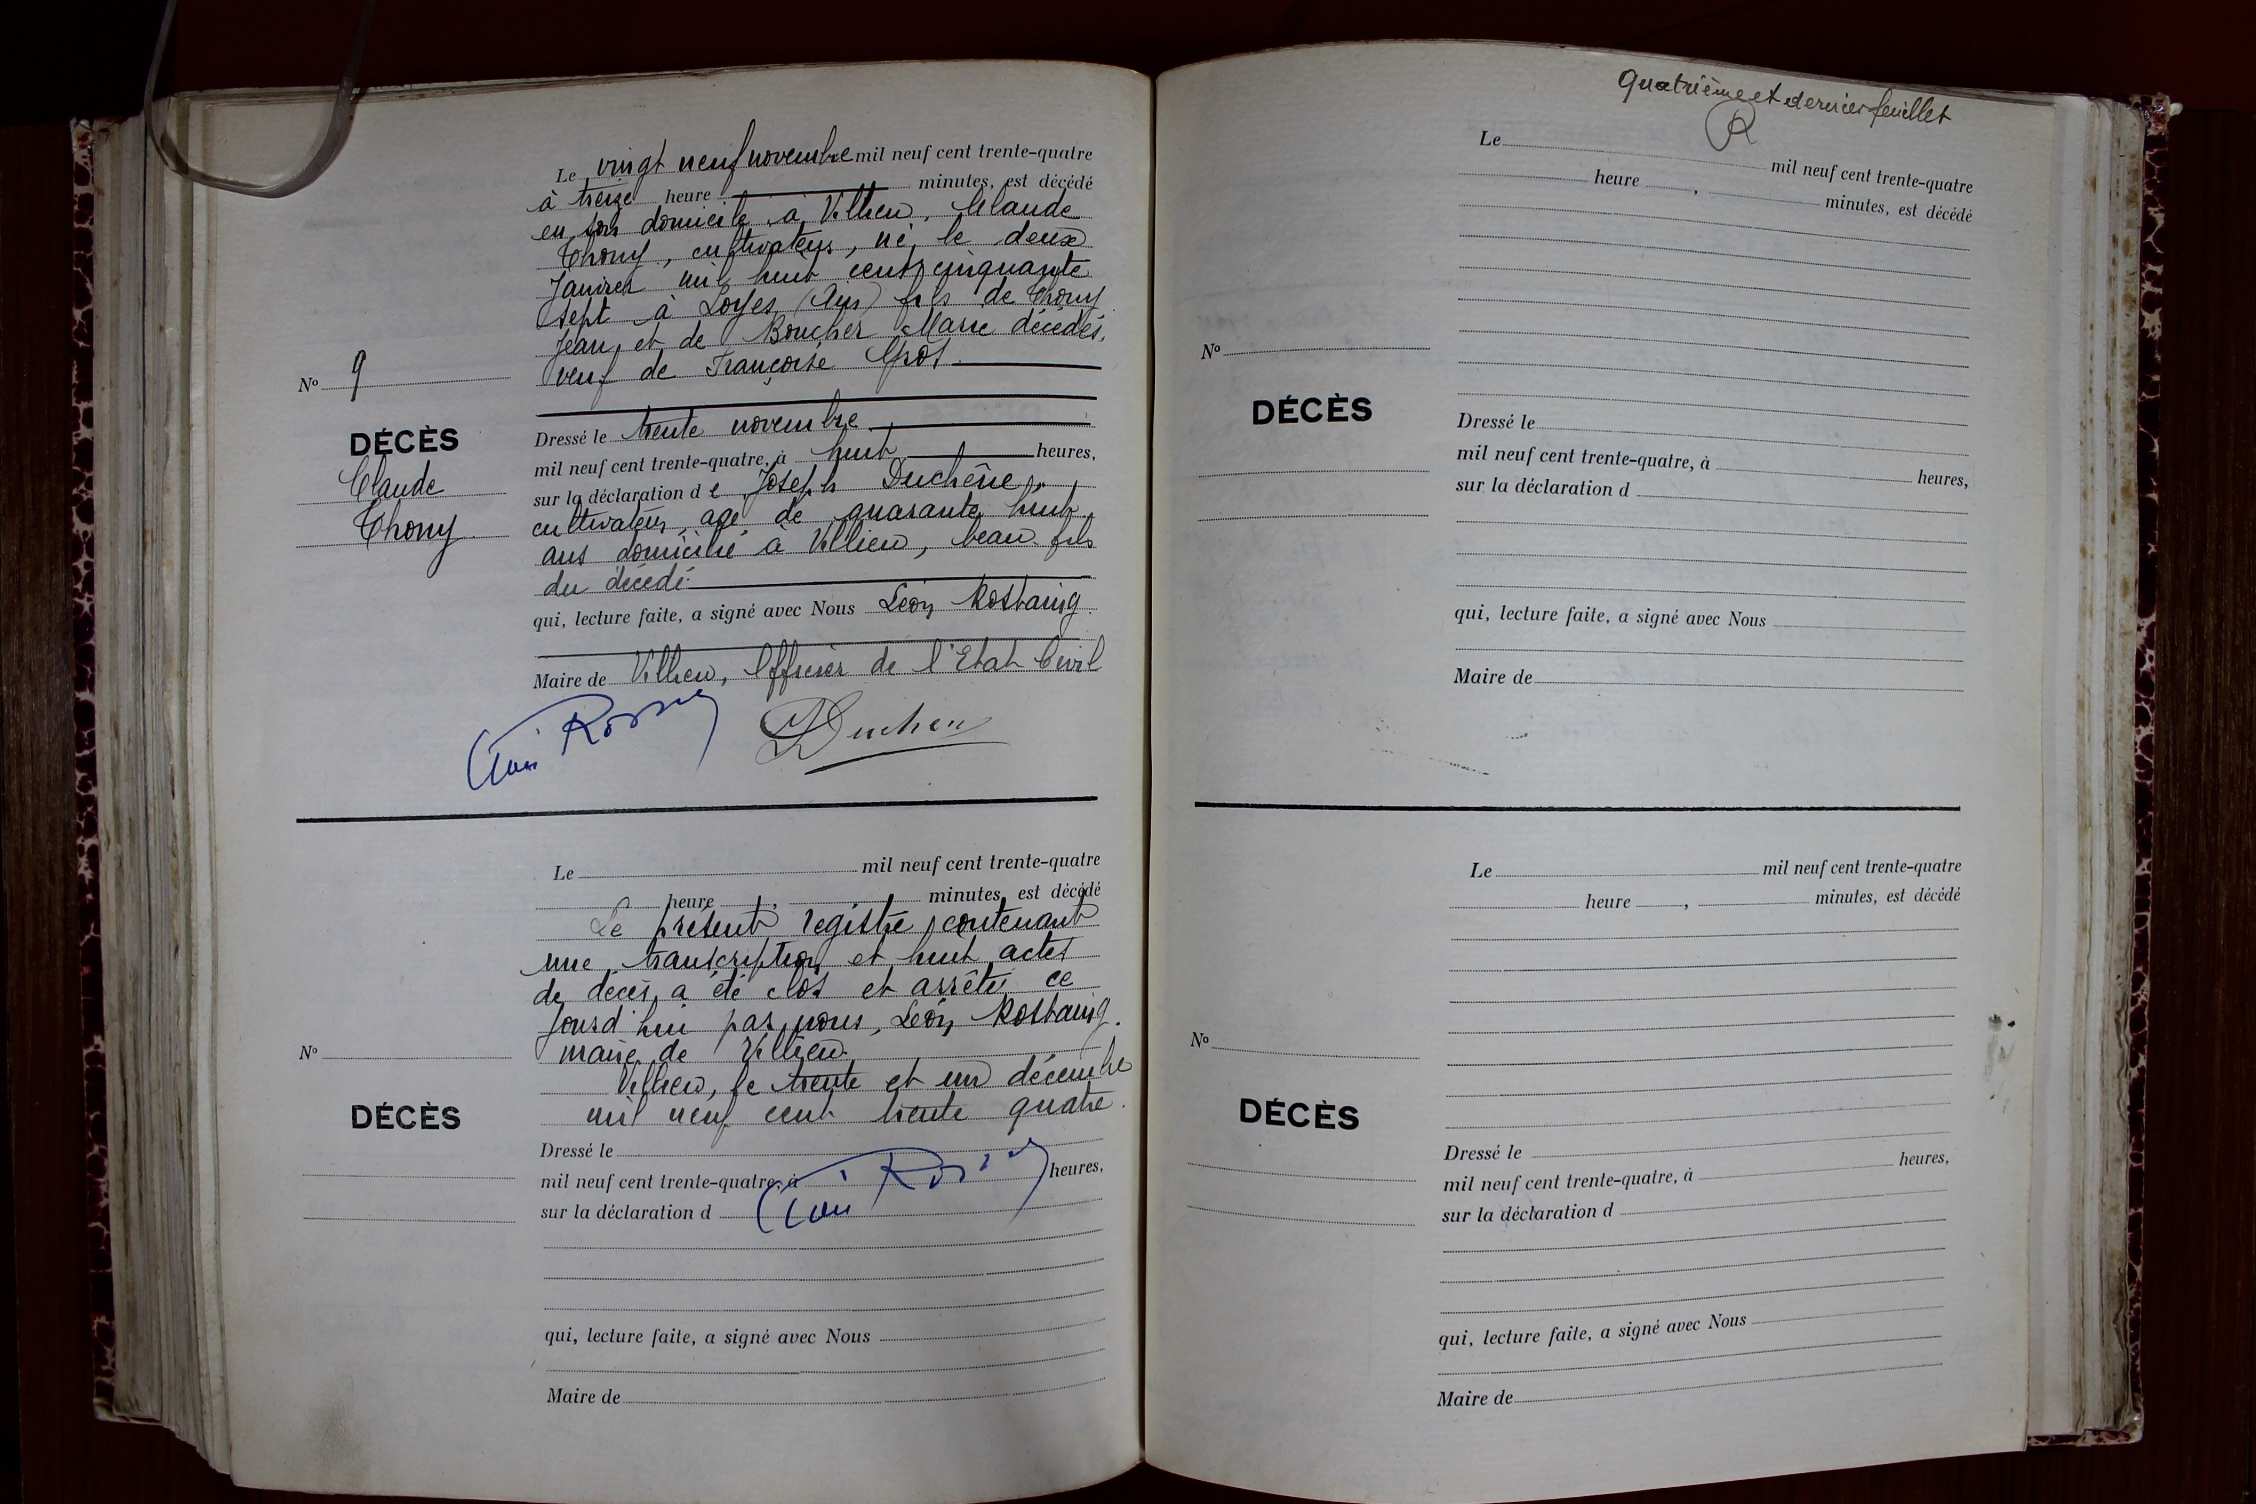 Le vingt neuf novembre mil neuf cent trente-quatre
à treize heure minutes, est décédé
en son domicile à Villieu, Claude
Thony, cultivateur, né le deux
Janvier mil huit cent cinquante
sept à Loyes (Ain) fils de Thony
Jean et de Boucher Marie décédés,
veuf de Françoise Gros
No 9
DÉCÈS
Claude
Thony
Dressé le trente novembre
mil neuf cent trente-quatre, à huit heures,
sur la déclaration de Joseph Duchêne,
cultivateur, agé de quarante huit
ans domicilié à Villieu, beau fils
du décédé
qui, lecture faite, a signé avec Nous Léon Rostaing.
Maire de Villieu, Officier de l'Etat Civil
Duchen
Le mil neuf cent trente-quatre
heure , minutes, est décédé
Le présent registre, contenant
une transcription et huit actes
de décès, a été clos et arrêté, ce
jourd'hui par nous, Léon Rostaing.
maire de Villieu.
Villieu, le trente et un décembre
mil neuf cent trente quatre.
No
DÉCÈS
Dressé le
mil neuf cent trente-quatre, à heures,
sur la déclaration d
qui, lecture faite, a signé avec Nous
Maire de
Quatrième et dernier feuillet
R
Le mil neuf cent trente-quatre
heure , minutes, est décédé
No
DÉCÈS
Dressé le
mil neuf cent trente-quatre, à heures,
sur la déclaration d
qui, lecture faite, a signé avec Nous
Maire de
Le mil neuf cent trente-quatre
heure , minutes, est décédé
No
DÉCÈS
Dressé le
mil neuf cent trente-quatre, à heures,
sur la déclaration d
qui, lecture faite, a signé avec Nous
Maire de